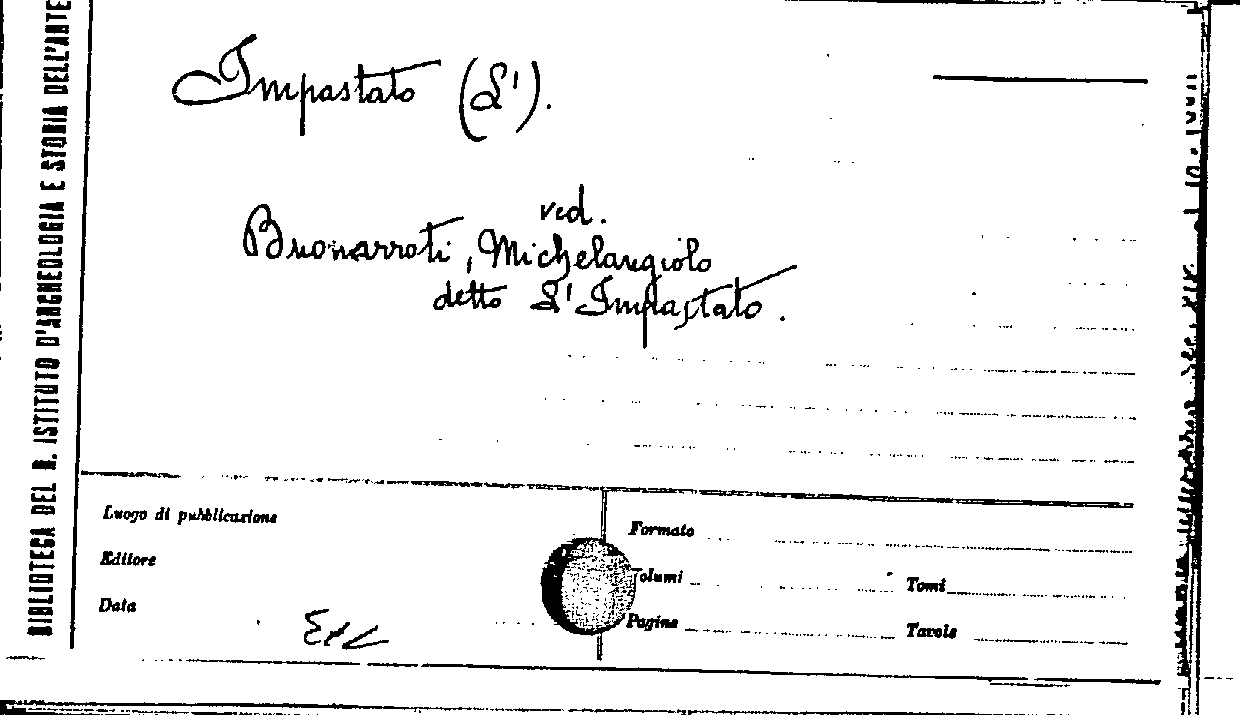 BIBLIOTECA DEL R. ISTITUTO D'ARCHEOLOGIA E STORIA DELL'ARTE
Impastato (L').
ved.
Buonarroti, Michelangiolo
detto L'Impastato.
Luogo di pubblicazione
Editore
Data
Formato
Volumi
Tomi
Pagine
Tavole